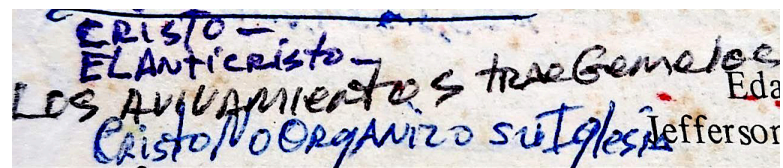 CRISTO -
EL ANTICRISTO -
LOS AVIVAMIENTOS TRAE GEMELOS
Eda
CRISTO NO ORGANIZO SU IGLESIA
Jefferson